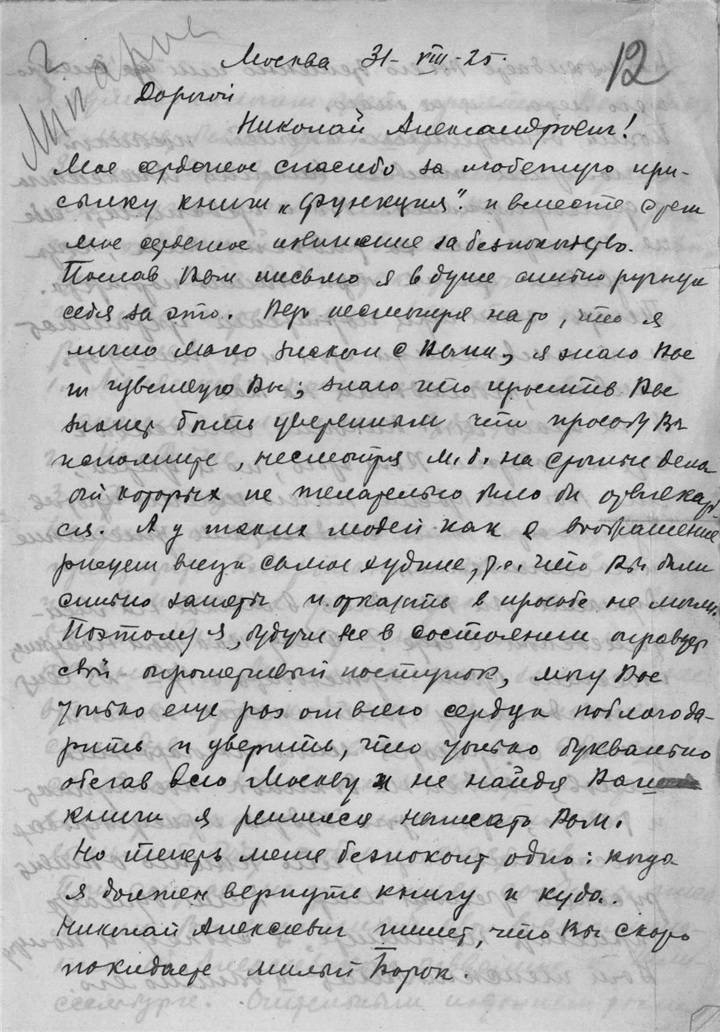 12
Москва 31-VIII-25.
Дорогой
Николай Александрович!
Мое сердечное спасибо за любезную при-
сылку книги „Функция“. и вместе с тем
мое сердечное извинение за безпокойство.
Послав Вам письмо я в душе сильно ругнул
себя за это. Ведь несмотря на то, что я
лично мало знаком с Вами, я знаю Вас
и чувствую Вы; знаю что просить Вас
значит быть уверенным что просьбу Вы
исполните, несмотря м.б. на срочные дела
от которых не желательно было бы отвлекать
ся. А у таких людей как я воображение
рисует всегда самое худшее, т.е. что Вы были
сильно заняты и отказать в просьбе не могли.
Поэтому я, будучи не в состоянии оправдать
свой опрометчивый поступок, могу Вас
только еще раз от всего сердца поблагода-
рить и уверить, что только буквально
обегав всю Москву и не найдя Вашей
книги я решился написать Вам.
Но теперь меня безпокоит одно: когда
я должен вернуть книгу и куда.
Николай Алексеевич пишет, что Вы скоро
покидаете милый Борок.